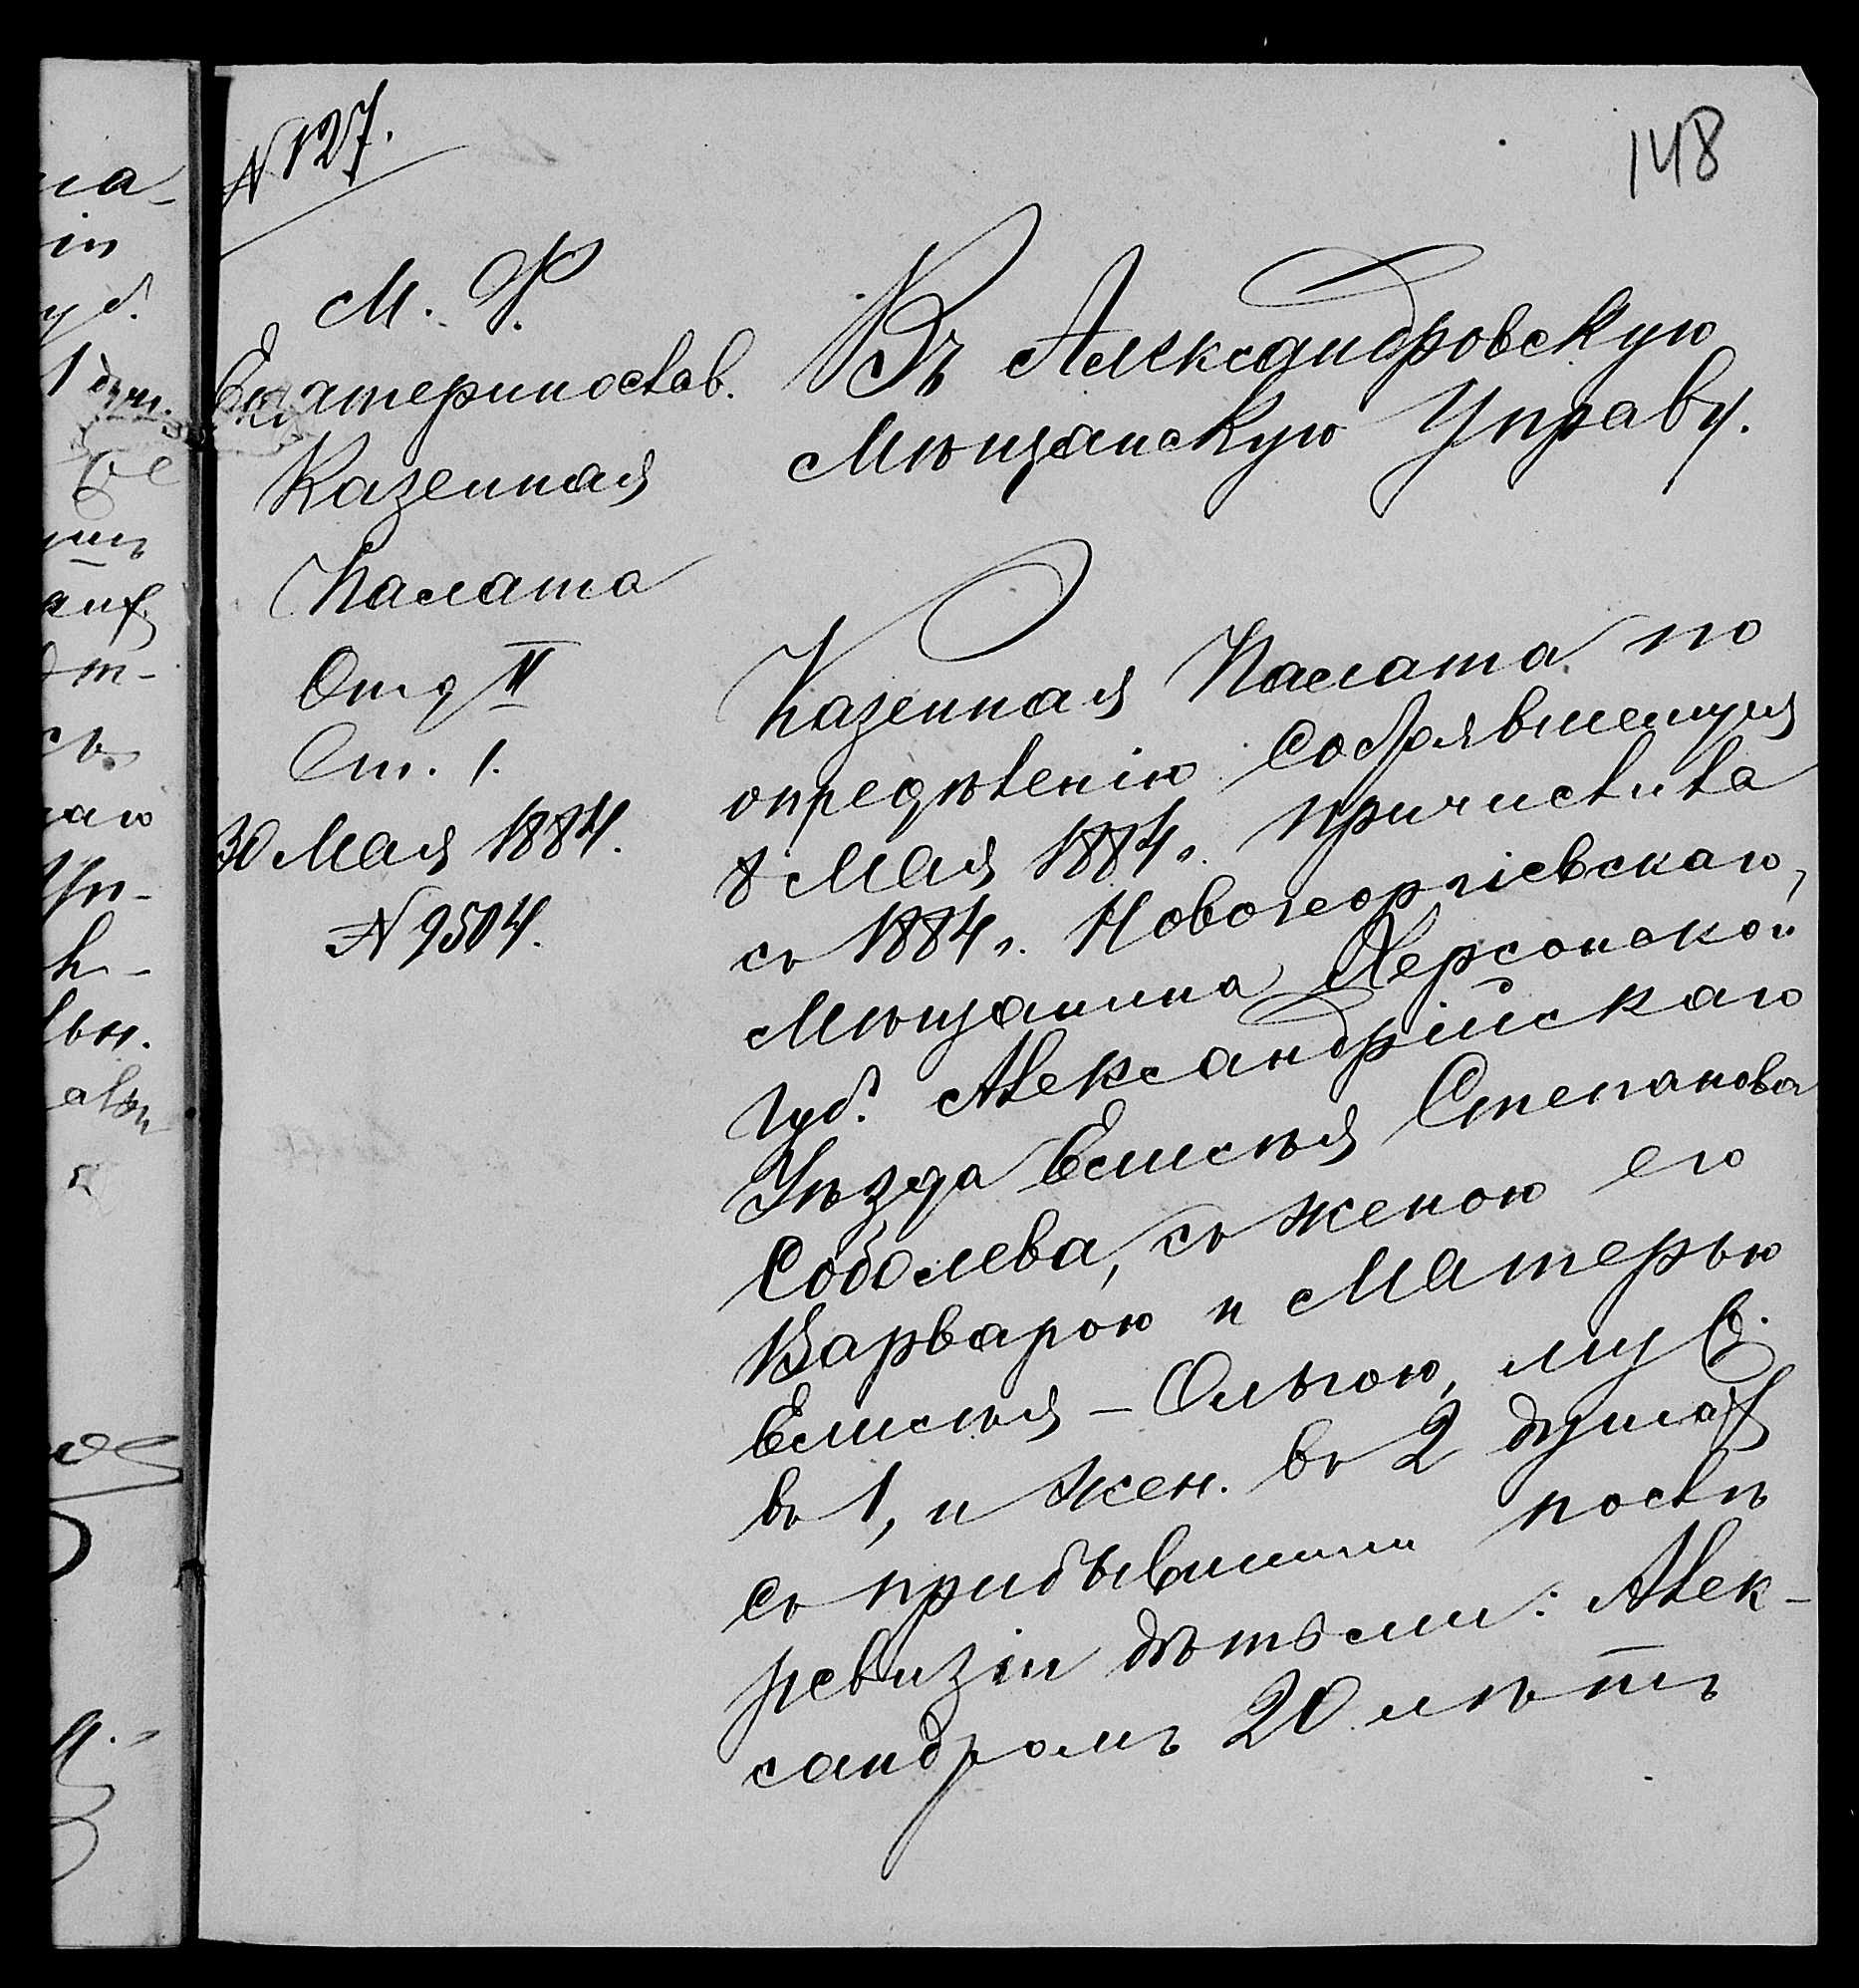 N 127.
148
М. Ф.
Екатеринослав.
Казенная
Палата
Отд II
Ст. 1.
30 Мая 1884.
N 9504.
Въ Александровскую
Мѣщанскую Управу.
Казенная Палата по
опредѣленію состоявшемуся
8 Мая 1884 г. причислила
съ 1884 г. Новогеоргіевскаго,
Мѣщанина Херсонской
губ. Александрійскаго
Уѣзда Елисѣя Степанова
Соболева, съ женою его
Варварою и Матерью
Елисѣя - Ольгою, муж.
въ 1, и жен. въ 2 душах
съ прибывшими послѣ
ревизіи дѣтьми: Алек-
сандромъ 20 лѣтъ